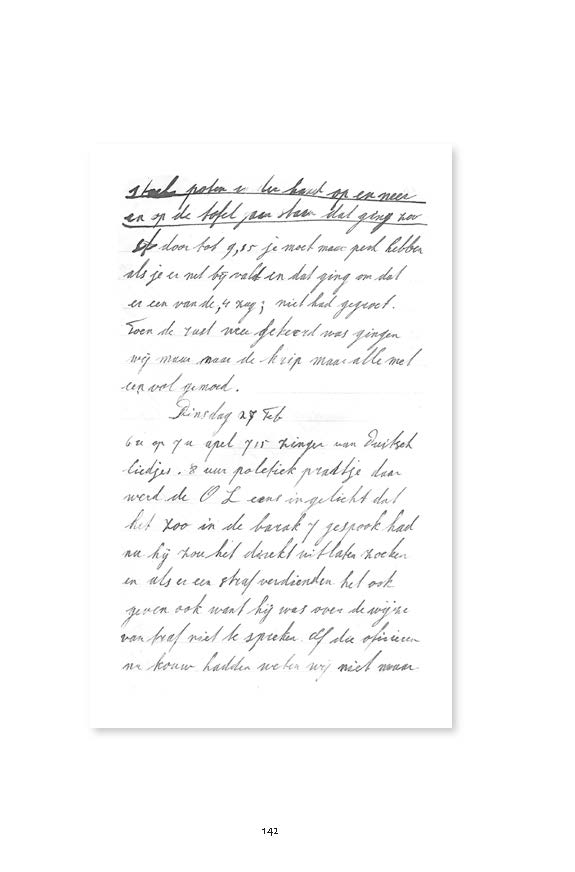 stoel poten in der hand op en neer
en op de tafel gaan staan dat ging zoo
door tot 9,35 je moet maar pech hebben
als je er net bij valt en dat ging om dat
er een van de, 4 zug; niet had gegroet.
Toen de rust weer gekeerd was gingen
wij maar naar de krip maar alle met
een vol gemoed.
Dinsdag 27 Feb
6 u op 7 u apel 7 15 zingen van Duitsch
liedjes. 8 uur politiek praatje daar
werd de O L eens ingelicht dat
het zoo in de barak 7 gespook had
nu hij zou het direkt uit laten zoeken
en als er een straf verdienden het ook
geven ook want hij was over de wijze
van straf niet te spreken. Of die oficieren
nu kouw hadden weten wij niet maar
142